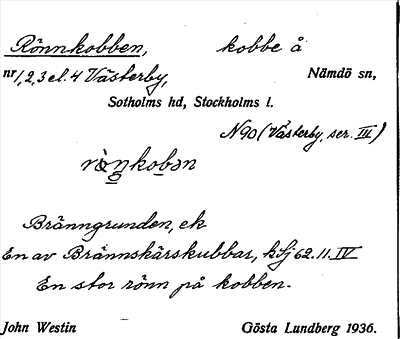 Rönnkobben, kobbe å
nr 1, 2, 3 el. 4 Västerby, Nämdö sn,
Sotholms hd, Stockholms l.
N90 (Västerby, ser. III)
rö̀n̥kobən
Bränngrunden, ek
En av Brännskärskubbar, hSj 62.11.IV
En stor rönn på kobben.
John Westin Gösta Lundberg 1936.